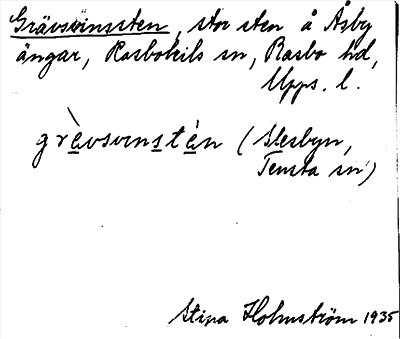 Grävsvinssten, stor sten å Åsby
ängar, Rasbokils sn, Rasbo hd,
Upps. l.
grè̱vsvins̱té̱n (Slesbyn,
Tensta sn)
Stina Holmström 1935